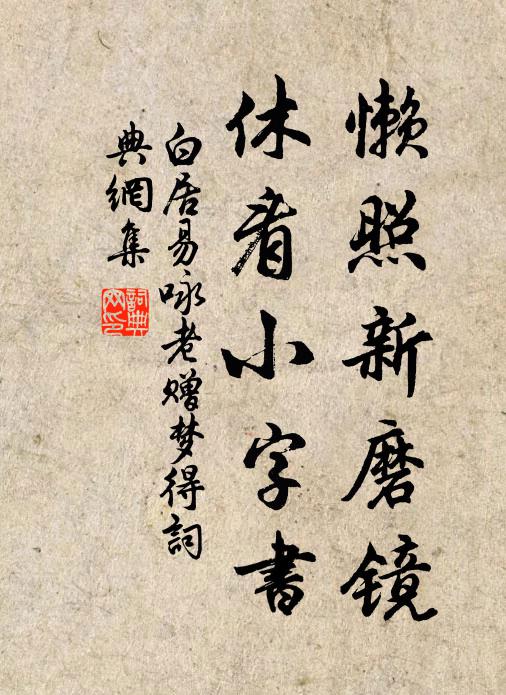 懒照新磨镜
休看小字書
白居易咏老赠梦得詞
典網集
詞典网印